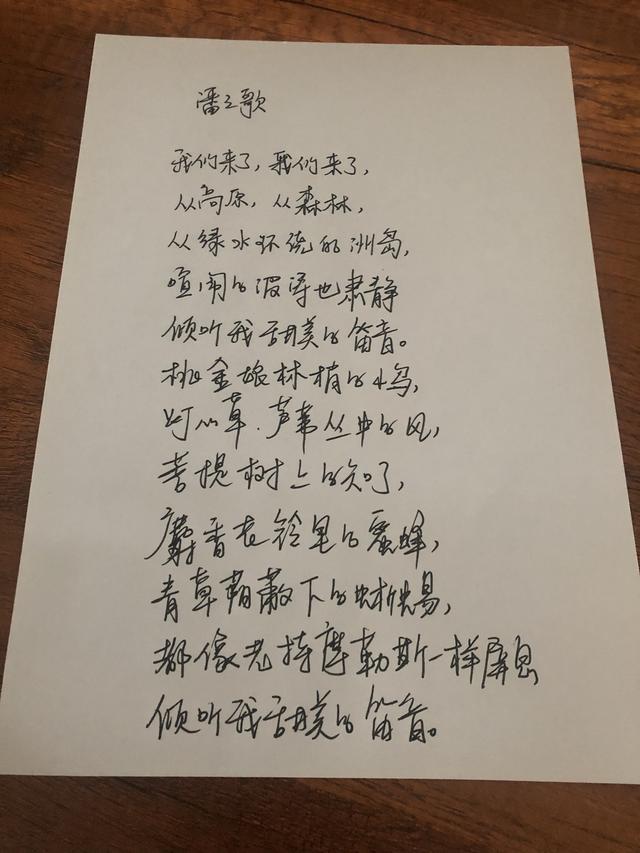 潘之歌
我们来了，我们来了，
从高原，从森林，
从绿水环绕的洲岛，
喧闹的波涛也肃静
倾听我甜美的笛音。
桃金娘林梢的小鸟，
灯心草、芦苇丛中的风，
菩提树上的知了，
麝香在铃里的蜜蜂，
青草荫蔽下的蜥蜴，
都像老特摩勒斯一样屏息
倾听我甜美的笛音。